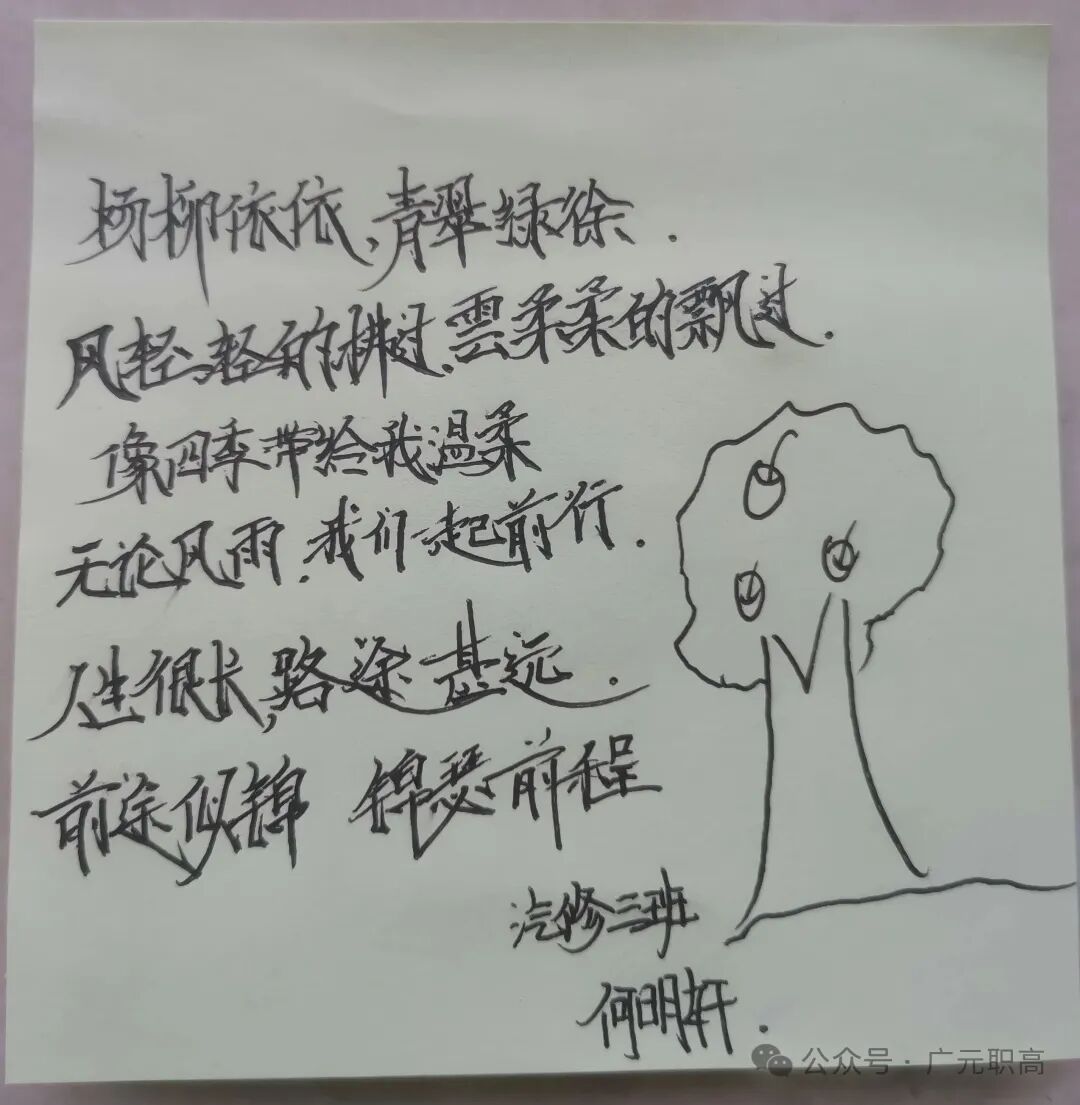 杨柳依依,青翠绿徐.
风轻轻的拂过.雲柔柔的飘过.
像四季带给我温柔
无论风雨.我们一起前行.
人生很长,路途甚远.
前途似锦 锦瑟前程
汽修三班
何明轩.
公众号·广元职高